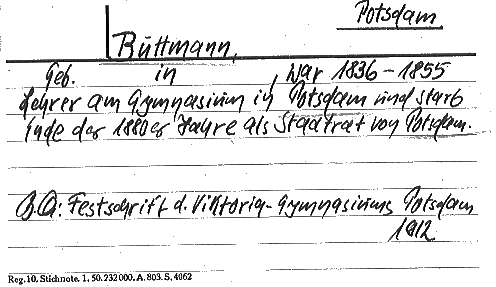 Potsdam.
Büttmann,
Geb. in , war 1836-1855
Lehrer am Gymnasium in Potsdam und starb
Ende der 1880er Jahre als Stadtrat von Potsdam.
B.Q.: Festschrift d. Viktoria-Gymnasiums Potsdam
1912
Reg. 10. Stichnote. 1. 50. 232 000. A. 803. S. 4062